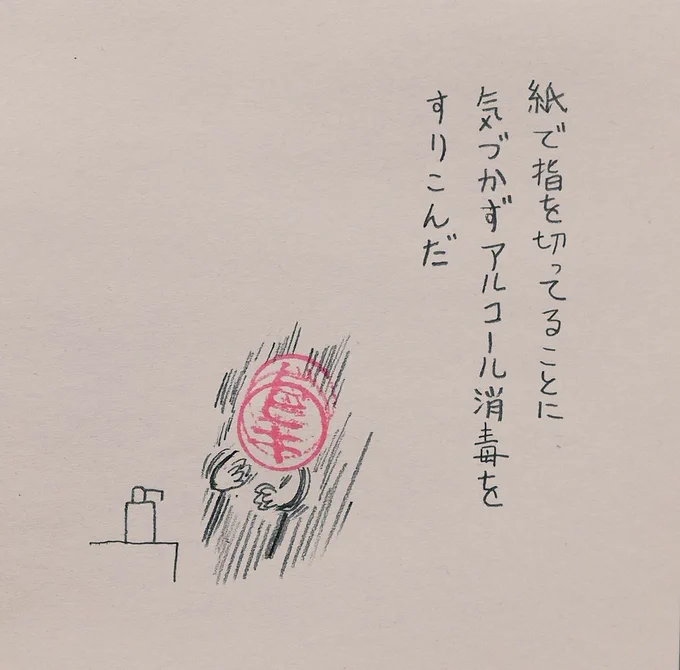 紙で指を切ってることに
気づかずアルコール消毒を
すりこんだ